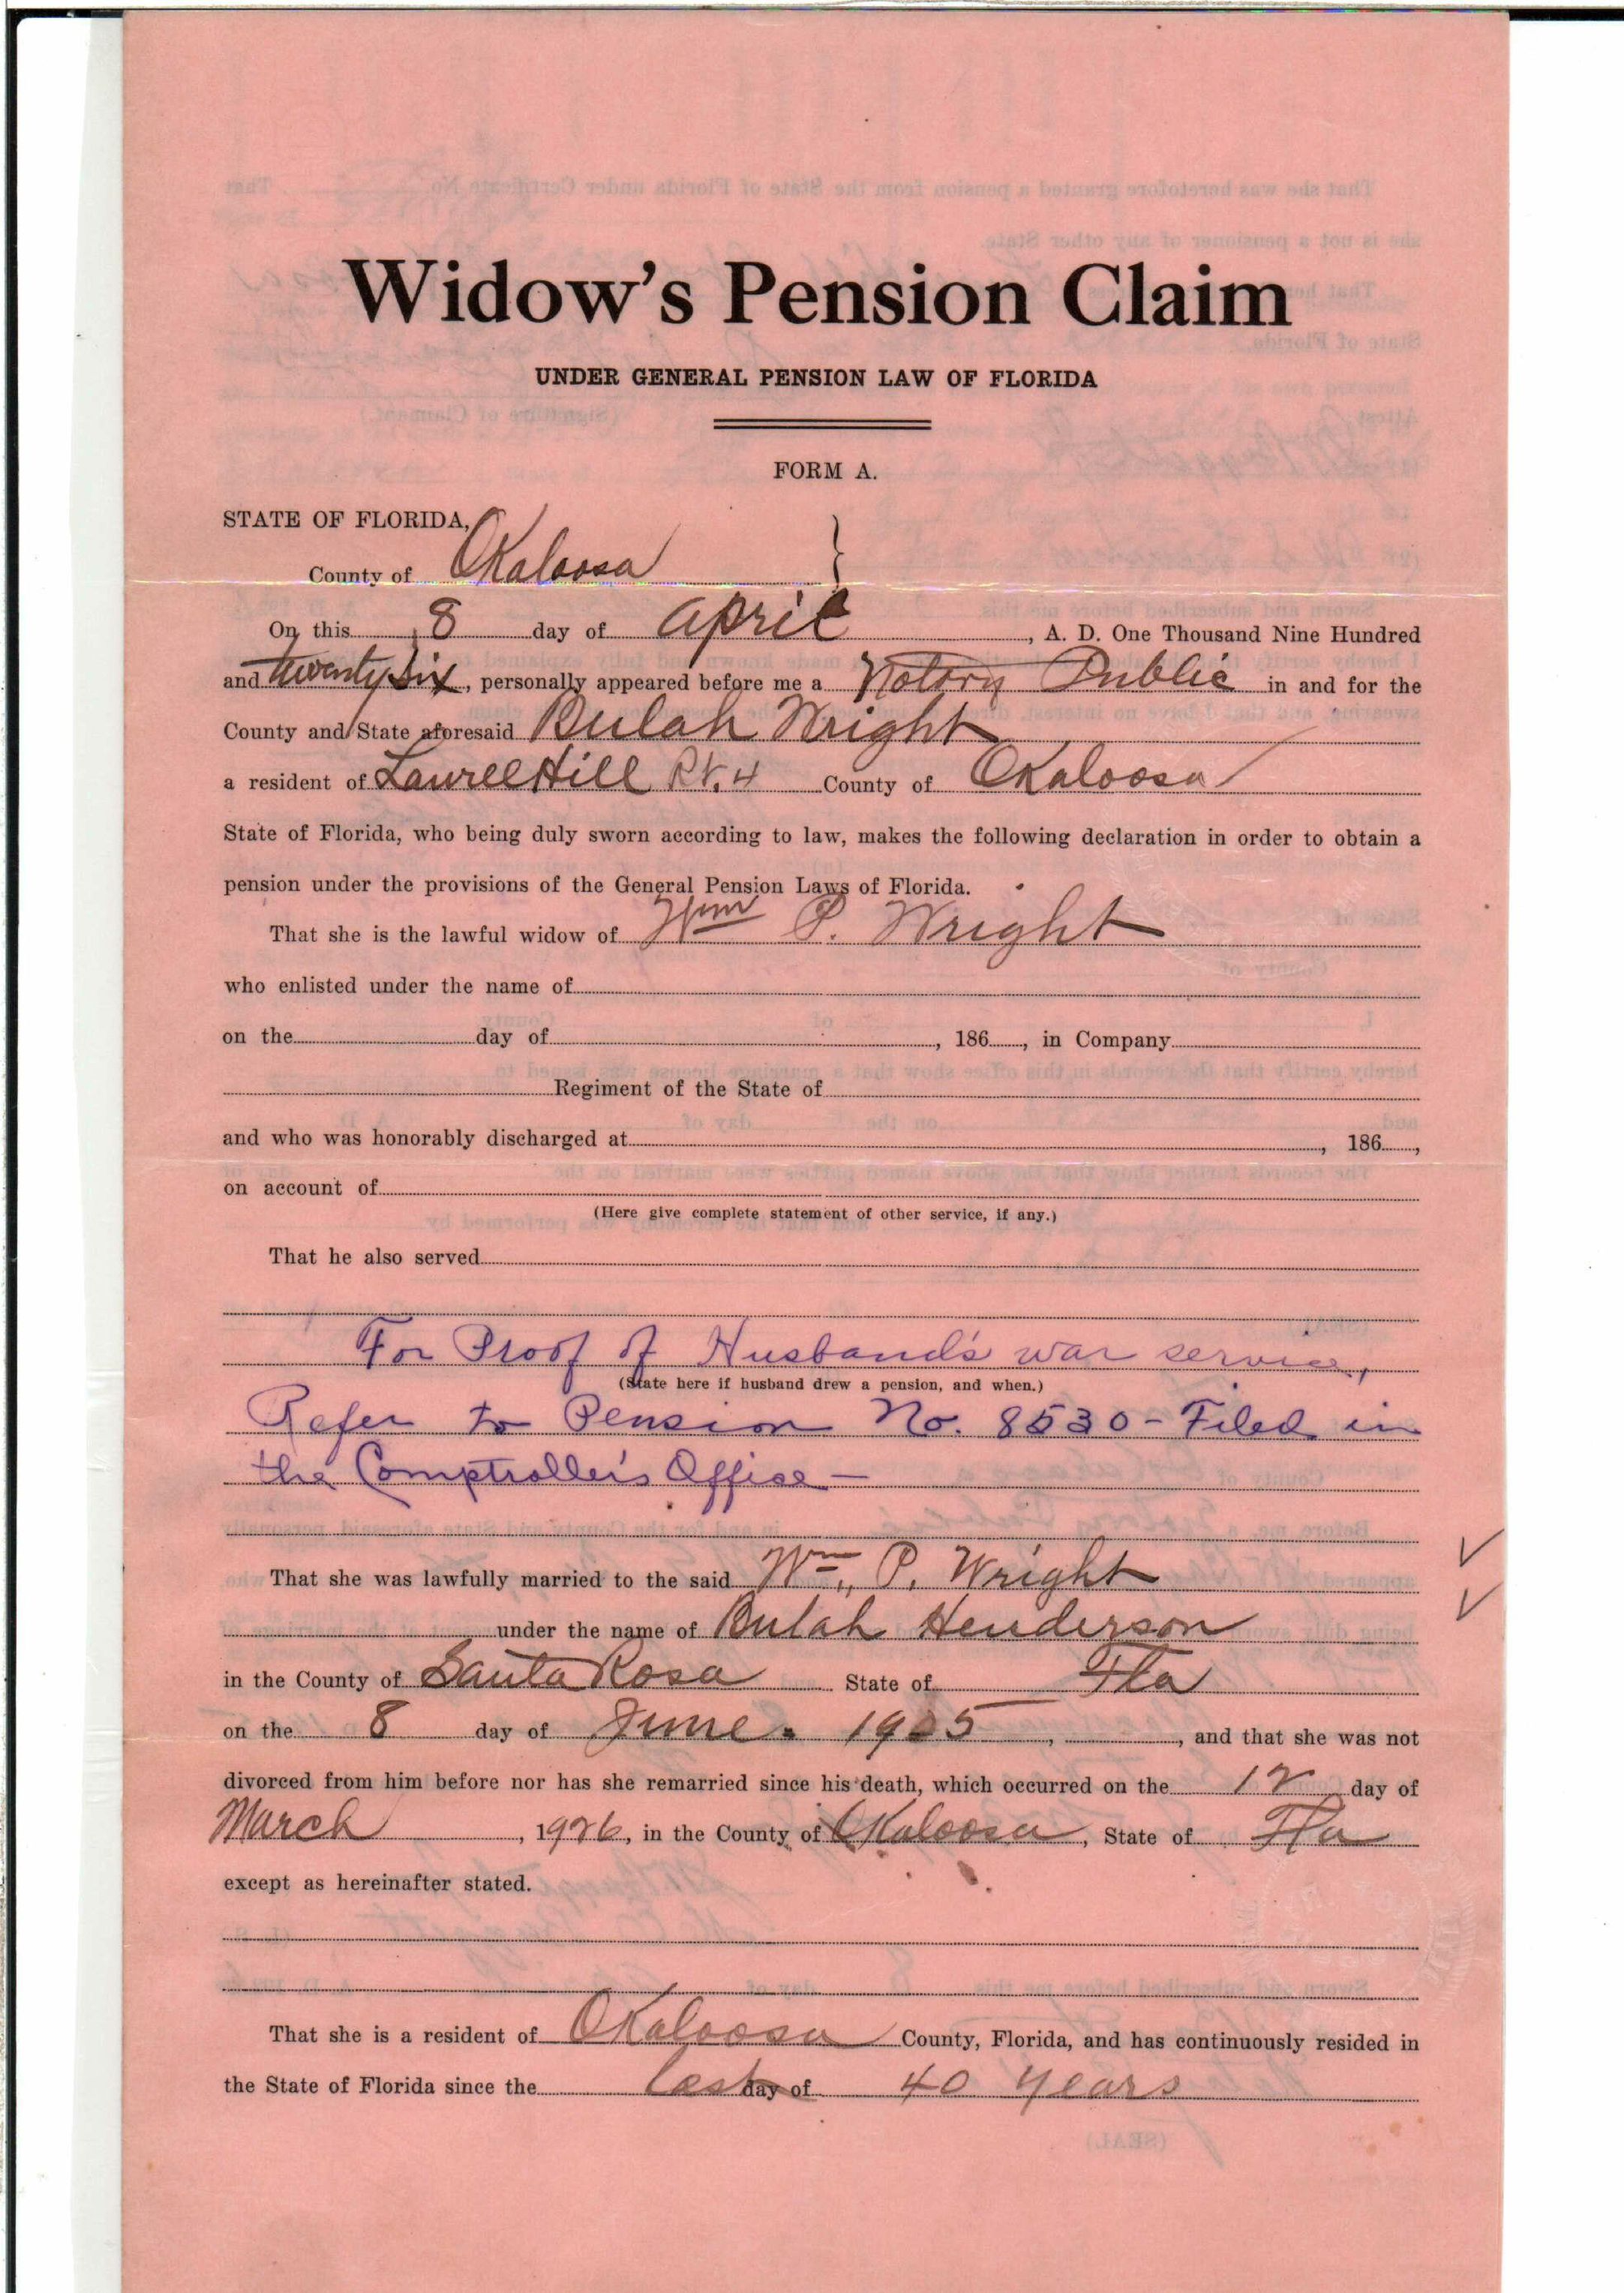 Widow's Pension Claim
UNDER GENERAL PENSION LAW OF FLORIDA
FORM A.
STATE OF FLORIDA,
County of Okaloosa }
On this 8 day of April, A. D. One Thousand Nine Hundred
and twenty Six, personally appeared before me a Notory Public in and for the
County and State aforesaid Bulah Wright
a resident of Laurel Hill Rt. 4 County of Okaloosa
State of Florida, who being duly sworn according to law, makes the following declaration in order to obtain a
pension under the provisions of the General Pension Laws of Florida.
That she is the lawful widow of Wm P. Wright
who enlisted under the name of
on the day of , 186 , in Company
Regiment of the State of
and who was honorably discharged at , 186 ,
on account of
(Here give complete statement of other service, if any.)
That he also served
For Proof of Husband's war service,
(State here if husband drew a pension, and when.)
Refer to Pension No. 8530 - Filed in
the Comptroller's Office —
That she was lawfully married to the said Wm. P. Wright
under the name of Bulah Henderson
in the County of Santa Rosa State of Fla
on the 8 day of June. 1905, , and that she was not
divorced from him before nor has she remarried since his death, which occurred on the 12 day of
March, 1926, in the County of Okaloosa, State of Fla
except as hereinafter stated.
That she is a resident of Okaloosa County, Florida, and has continuously resided in
the State of Florida since the last day of 40 years